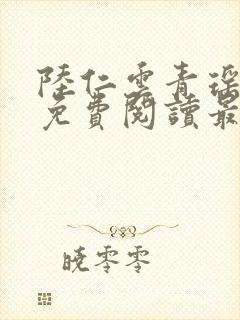 陸仁雲青瑤
免費閱讀最
曉零零